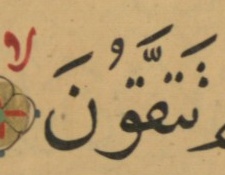 تَتَّقُونَ لا